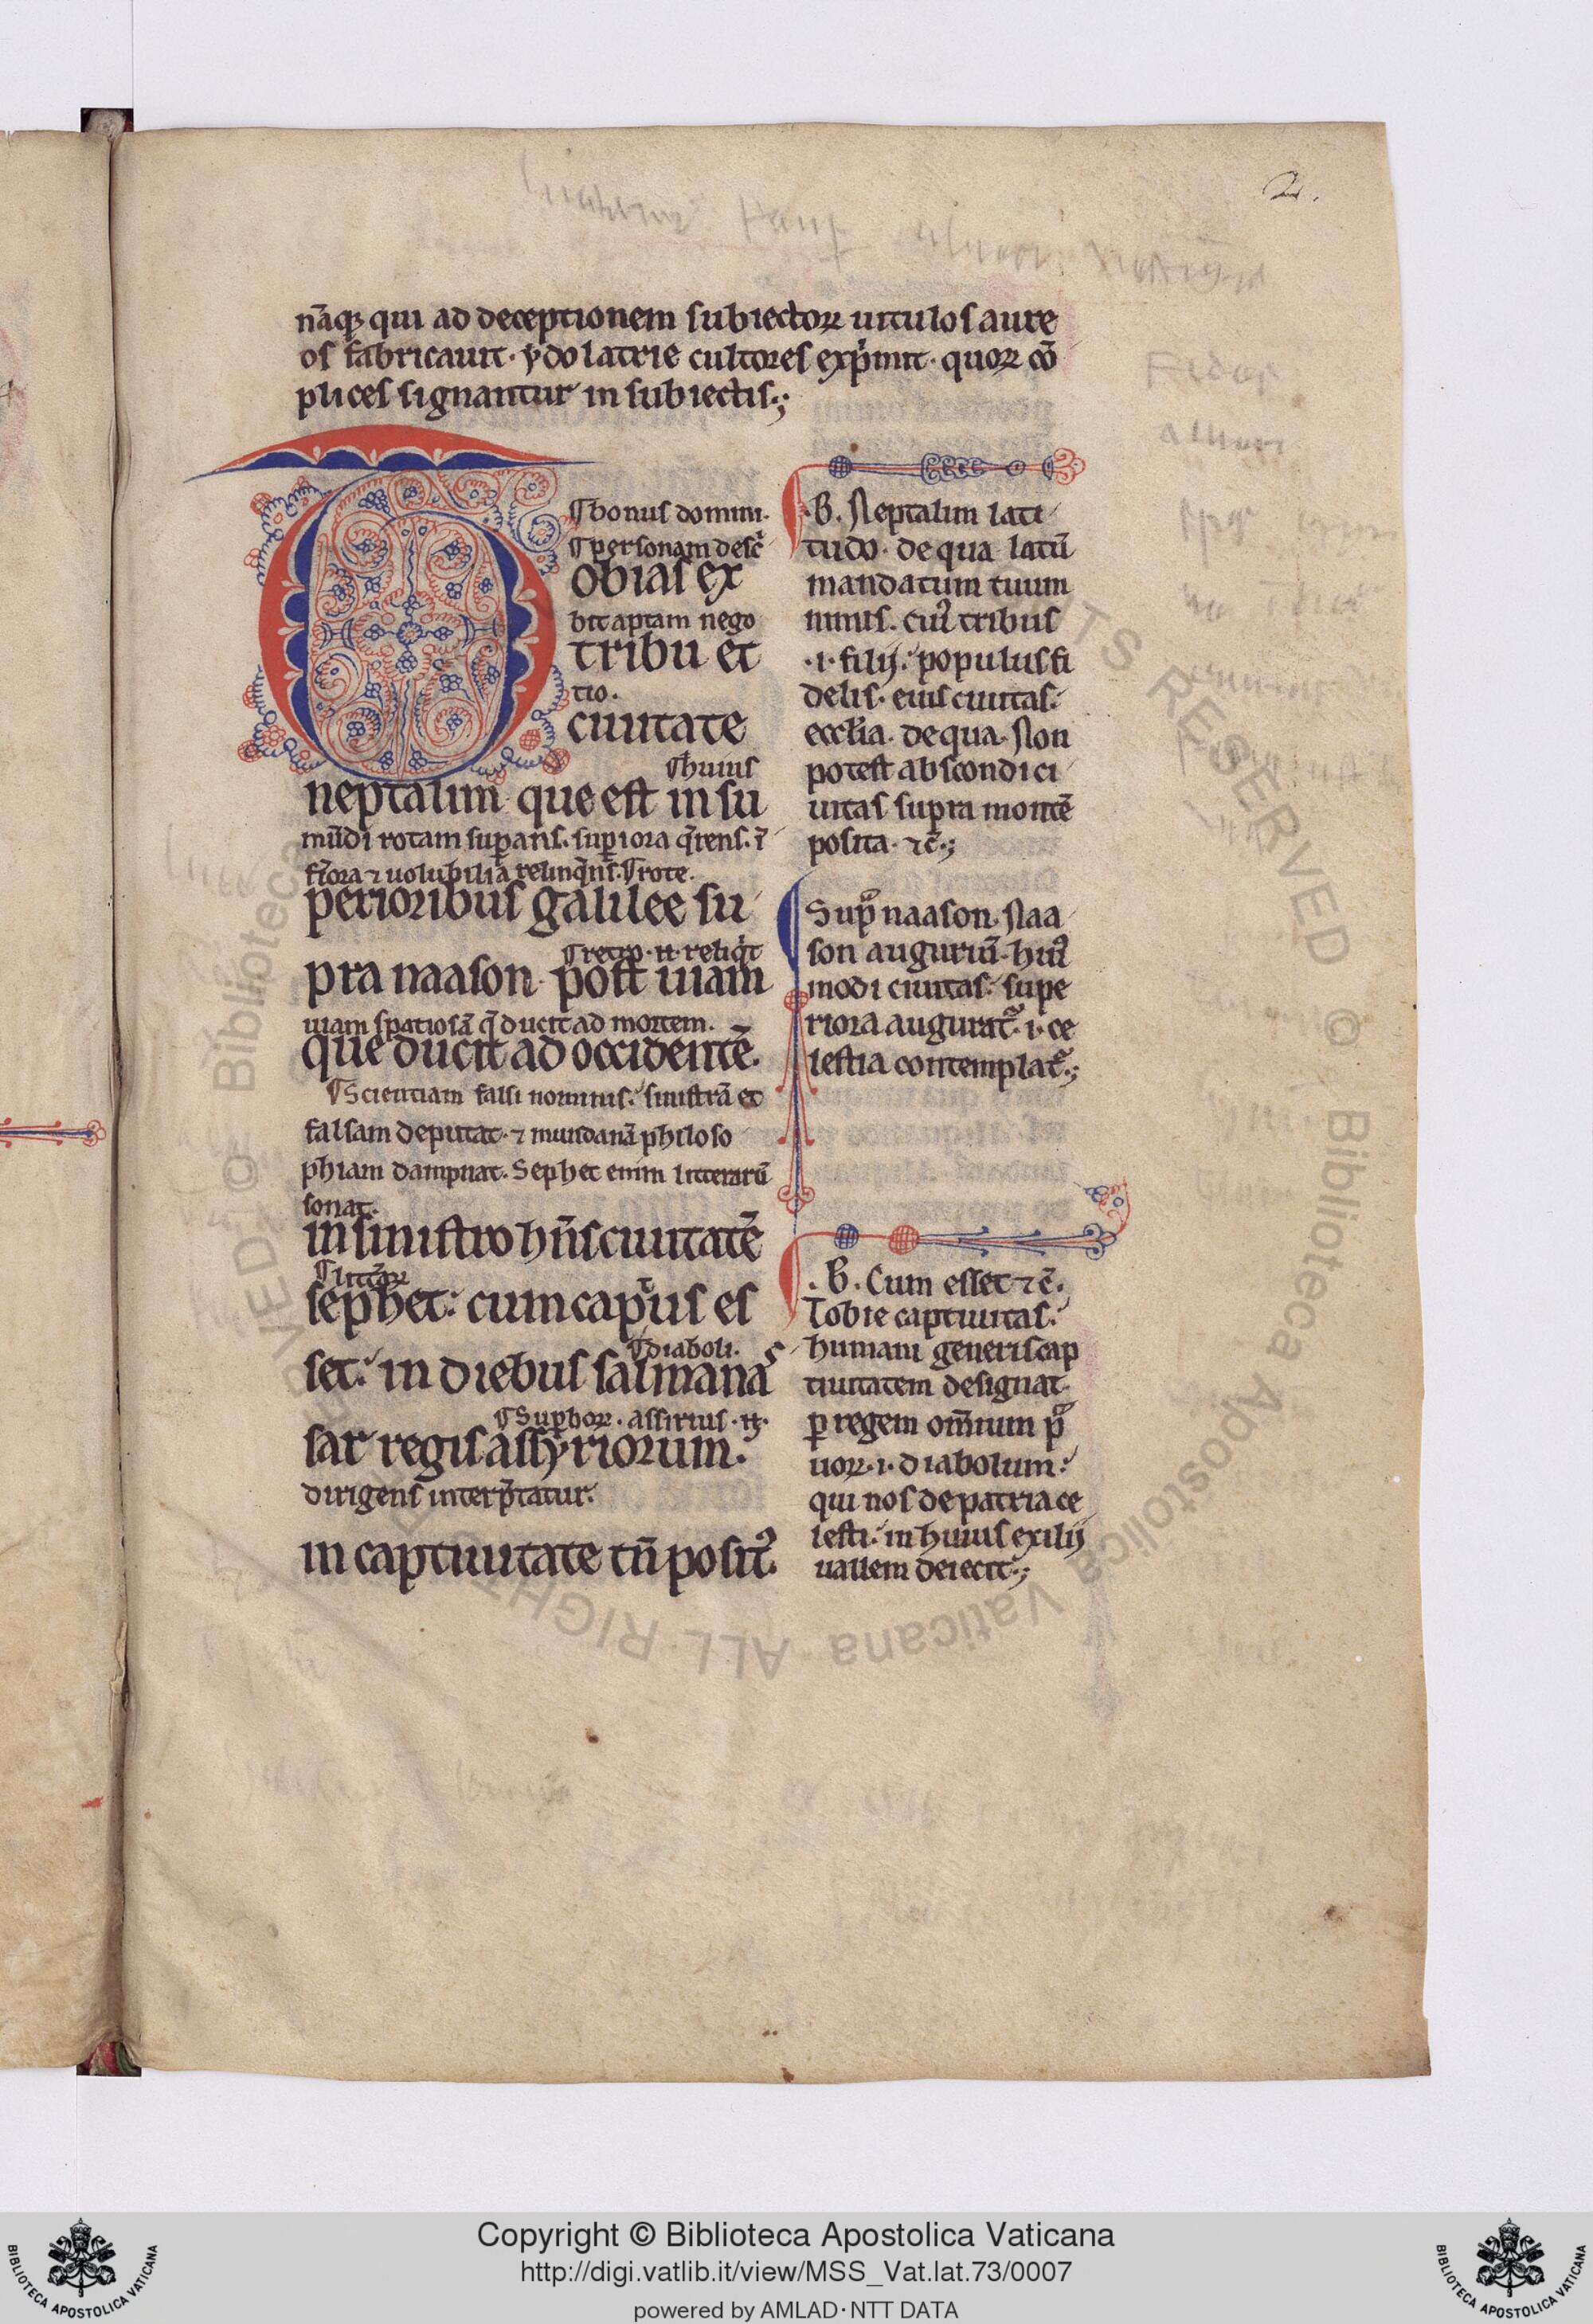 2.
nāq; qui ad deceptionem subiectoꝝ uitulos aure
os fabricauit · ydolatrie cultores exp̍mit · quoꝝ cō
plices signantur in subiectis.;
¶bonus domini.
¶personam desc̍
Tobias ex
bit aptam nego
tribu et
tio.
ciuitate
¶huius
neptalim · que est in su
mūdi rotam suꝑans. suꝑiora q̄rens. ī
fiora ⁊ uolubilia relinq̄ns. ¶rote.
perioribus galilee su
pra naason · post uiam
uiam spatiosā q̄ ducit ad mortem.
que ducit ad occidentē.
¶Scientiam falsi nominis. sinistrā et
falsam deputat · ⁊ mundanā philoso
phiam dampnat. Sephet enim litterarū
sonat.
in sinistro hn̄s ciuitatē
¶litt̄aꝝ
sephet: cum capt̍us es
¶diaboli.
set: in diebus salmanas
¶Suꝑboꝝ. assirius .n̄.
sar regis assyriorum.
dirigens interp̄tatur.
in captiuitate tn̄ positꝰ
.B. Neptalim lati
tudo · de qua latū
mandatum tuum
nimis. cuiꝰ tribus
·i· filij: populus fi
delis · eius ciuitas:
eccl̄ia. de qua. Non
potest abscondi ci
uitas supra montē
posita · ⁊c̄.;
Supͣ naason. Naa
son auguriū. huiꝰ
modi ciuitas: supe
riora augurat᷑ · i · ce
lestia contemplat᷑.;
.B. Cum esset ⁊c̄.
Tobie captiuitas:
humani generis cap
tiuitatem designat
ꝑ regem om̄ium pͣ
uoꝝ · i · diabolum:
qui nos de patria ce
lesti: in huius exilij
uallem deiecit.;
Copyright © Biblioteca Apostolica Vaticana
http://digi.vatlib.it/view/MSS_Vat.lat.73/0007
powered by AMLAD·NTT DATA
BIBLIOTECA APOSTOLICA VATICANA
BIBLIOTECA APOSTOLICA VATICANA